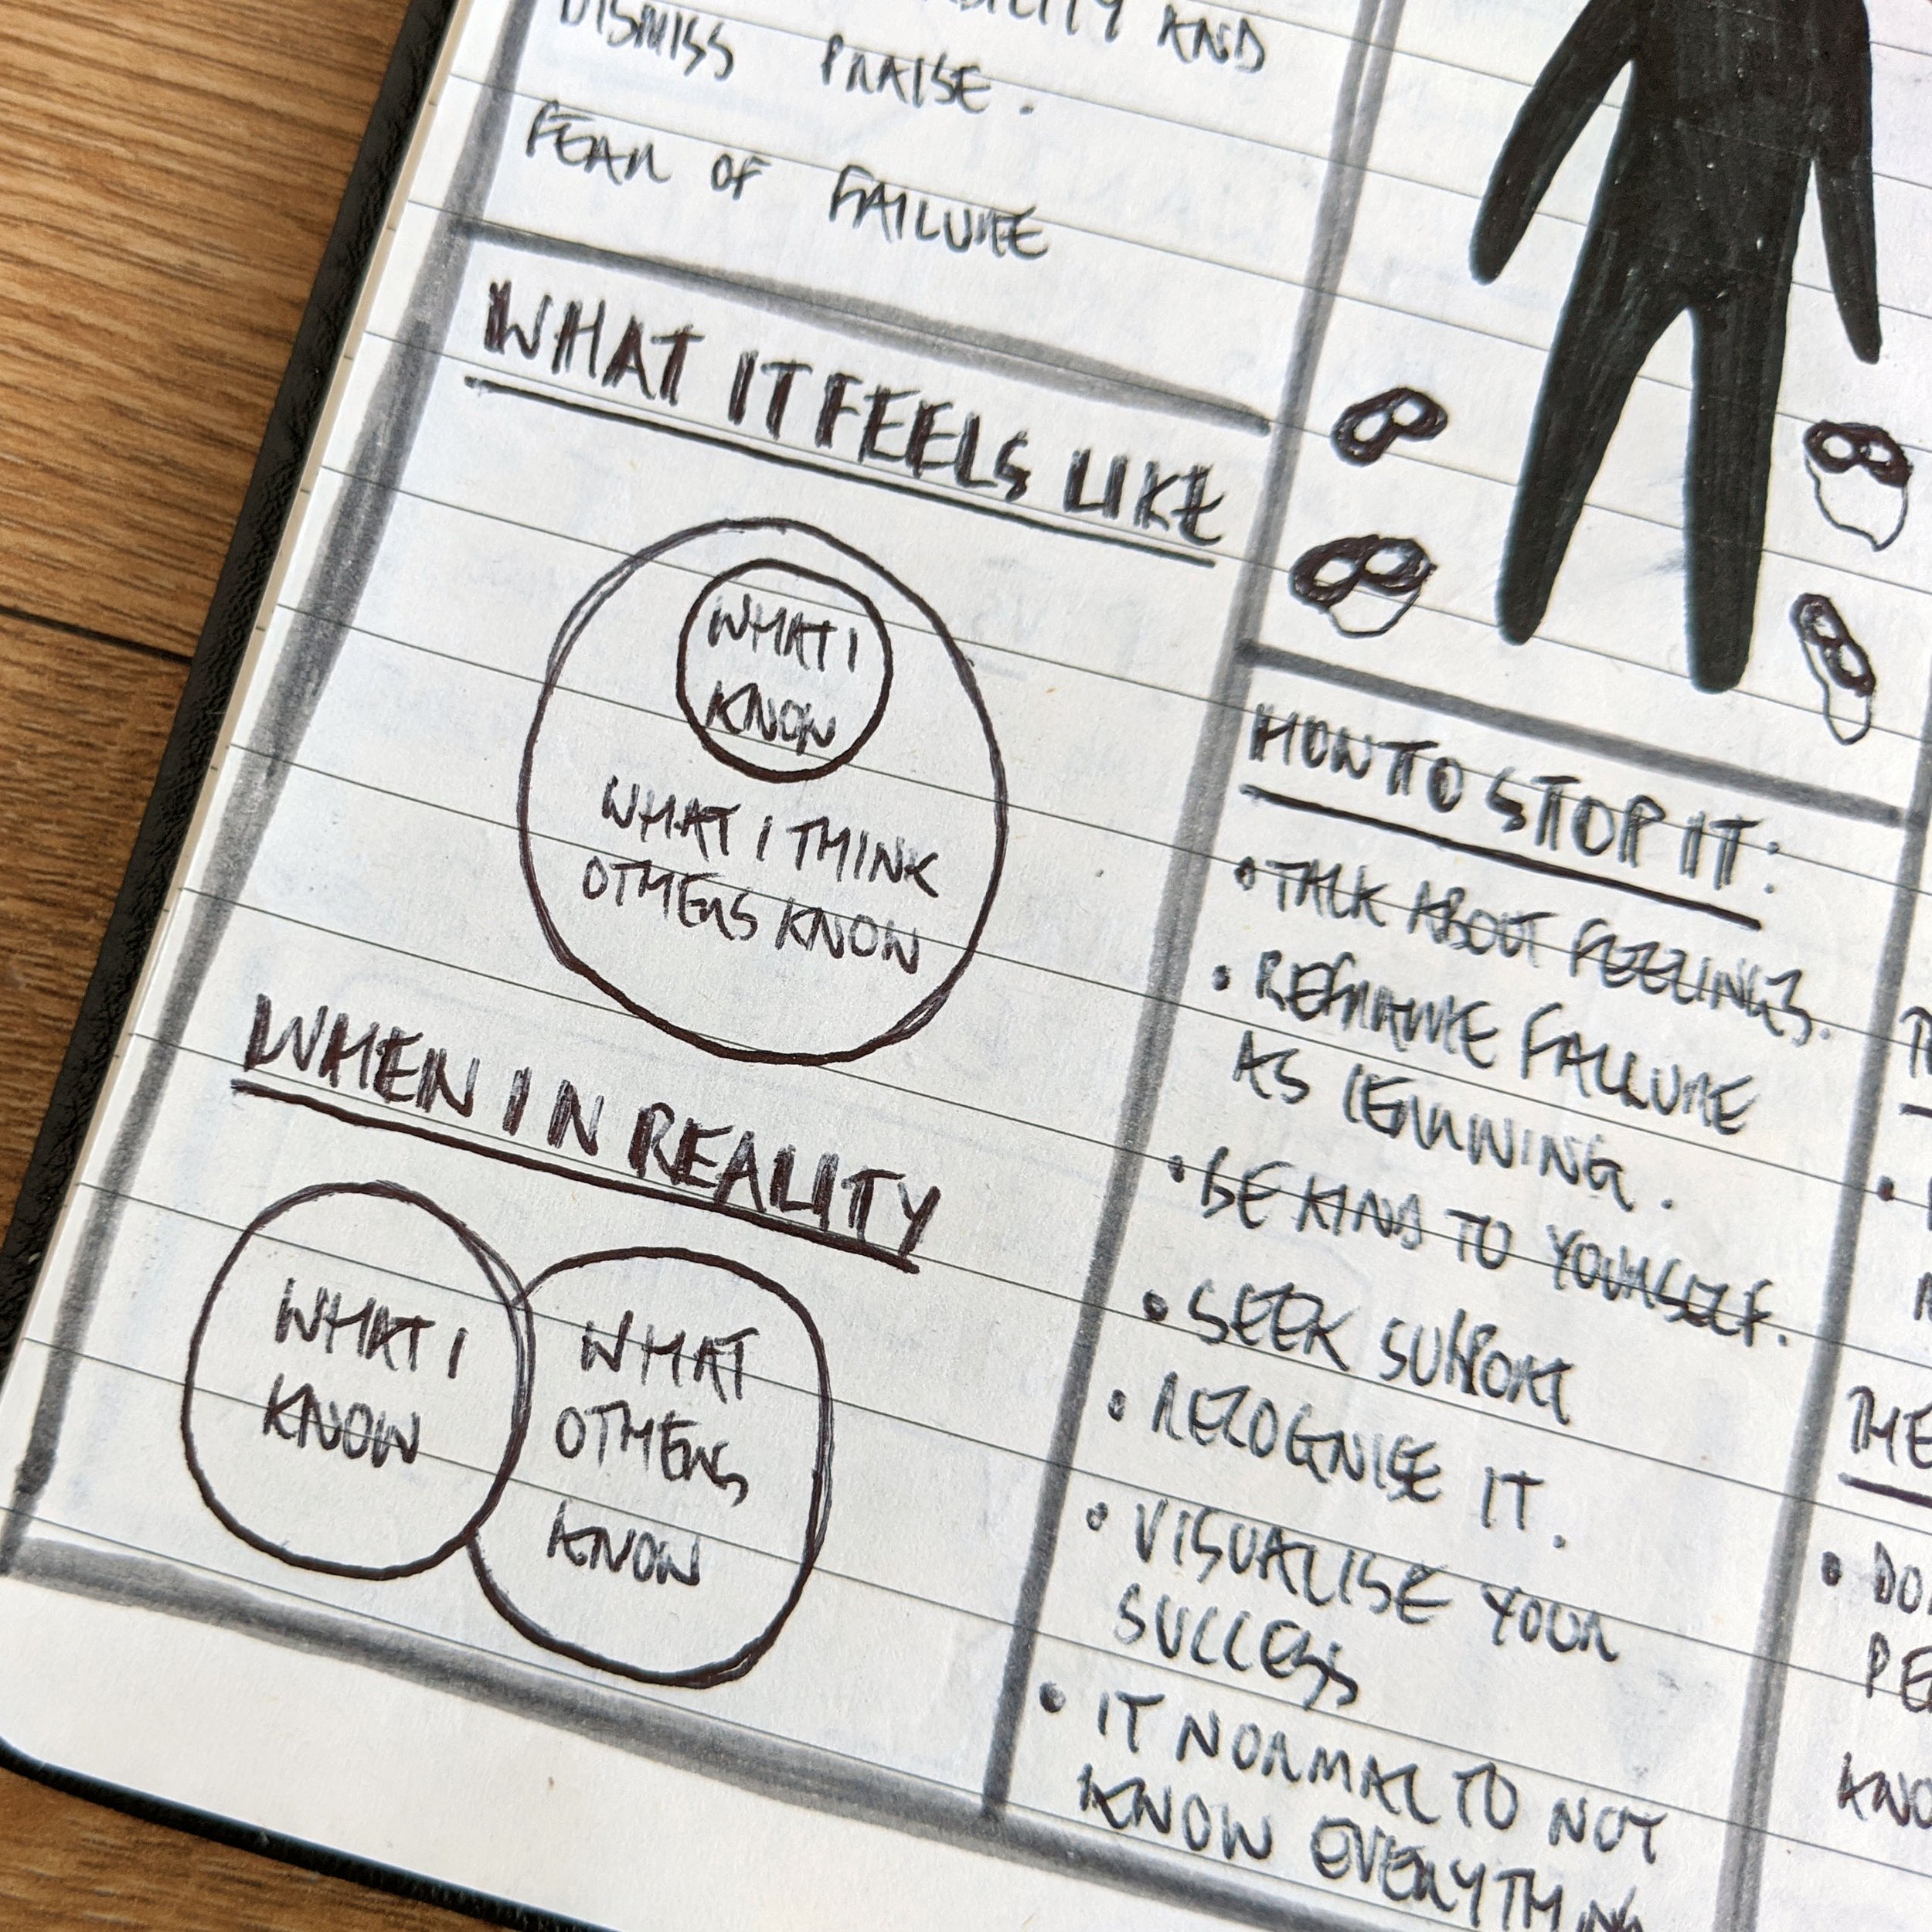 AND
DISMISS PRAISE.
FEAR OF FAILURE
WHAT IT FEELS LIKE
WHAT I
KNOW
WHAT I THINK
OTHERS KNOW
WHEN IN REALITY
WHAT I
KNOW
WHAT
OTHERS
KNOW
HOW TO STOP IT:
• TALK ABOUT FEELINGS.
• REFRAME FAILURE
AS LEARNING.
• BE KIND TO YOURSELF.
• SEEK SUPPORT
• RECOGNISE IT.
• VISUALISE YOUR
SUCCESS
• IT NORMAL TO NOT
KNOW EVERYTHING
THE